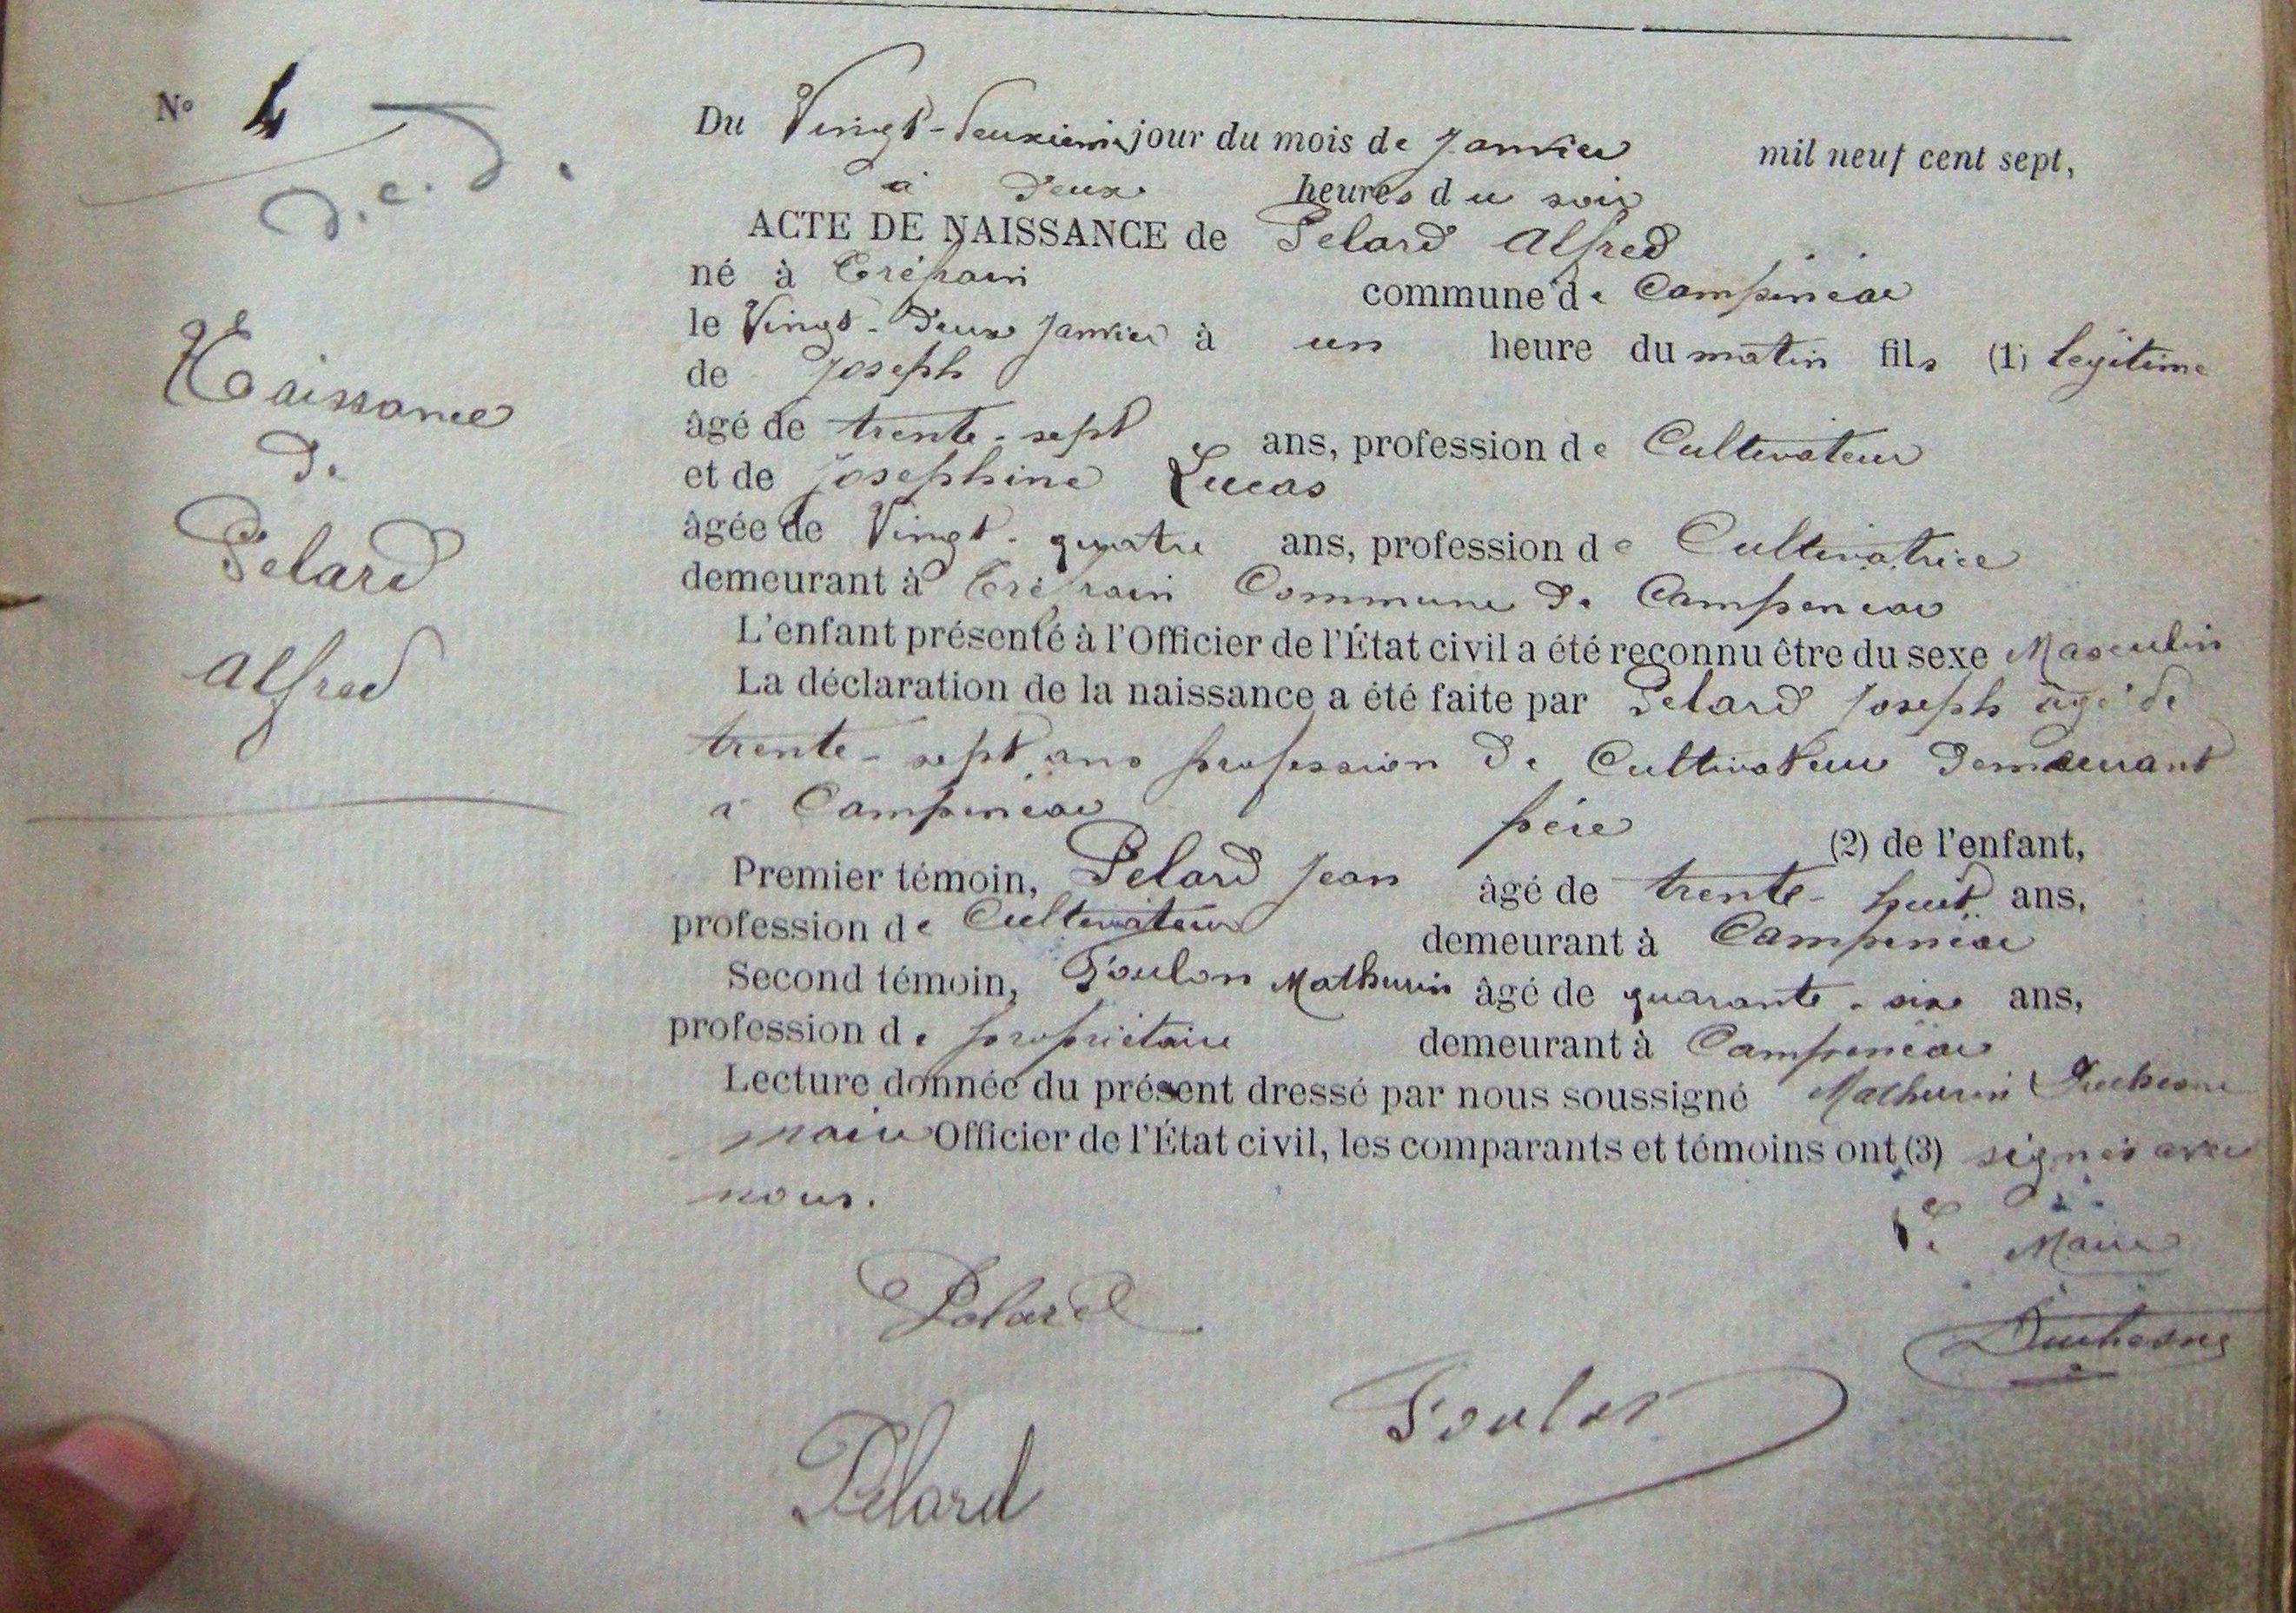 N° 4
d. c. d.
Naissance
de
Pelard
Alfred
Du Vingt-deuxième jour du mois de Janvier mil neuf cent sept,
à deux heures du soir
ACTE DE NAISSANCE de Pelard Alfred
né à Trépain commune de Campénéac
le Vingt-deux Janvier à un heure du matin fils (1) légitime
de Joseph
âgé de trente-sept ans, profession de Cultivateur
et de Josephine Lucas
âgée de Vingt-quatre ans, profession de Cultivatrice
demeurant à Trépain Commune de Campénéac
L'enfant présenté à l'Officier de l'État civil a été reconnu être du sexe Masculin
La déclaration de la naissance a été faite par Pelard Joseph âgé de
trente-sept ans profession de Cultivateur demeurant
à Campénéac père (2) de l'enfant,
Premier témoin, Pelard Jean âgé de trente-huit ans,
profession de Cultivateur demeurant à Campénéac
Second témoin, Foulon Mathurin âgé de quarante-six ans,
profession de propriétaire demeurant à Campénéac
Lecture donnée du présent dressé par nous soussigné Mathurin Duchesne
maire Officier de l'État civil, les comparants et témoins ont (3) signés avec
nous.
Le Maire
Pelard
Duchesne
Foulon
Pelard